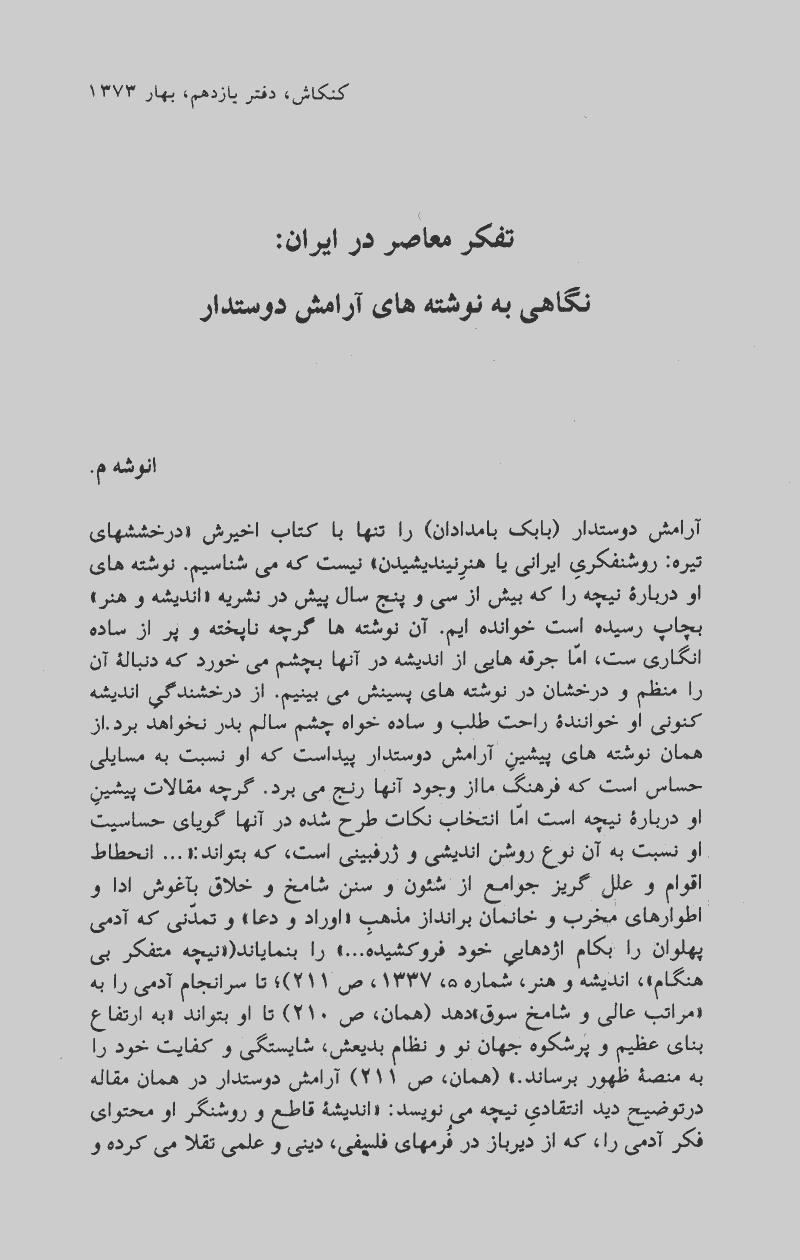 کنکاش، دفتر یازدهم، بهار ۱۳۷۳
تفکر معاصر در ایران:
نگاهی به نوشته های آرامش دوستدار
انوشه م.
آرامش دوستدار (بابک بامدادان) را تنها با کتاب اخیرش «درخششهای
تیره: روشنفکریِ ایرانی یا هنرِنیندیشیدن» نیست که می شناسیم. نوشته های
او دربارهٔ نیچه را که بیش از سی و پنج سال پیش در نشریه «اندیشه و هنر»
بچاپ رسیده است خوانده ایم. آن نوشته ها گرچه ناپخته و پر از ساده
انگاری ست، امّا جرقه هایی از اندیشه در آنها بچشم می خورد که دنبالهٔ آن
را منظم و درخشان در نوشته های پسینش می بینیم. از درخشندگیِ اندیشه
کنونی او خوانندهٔ راحت طلب و ساده خواه چشم سالم بدر نخواهد برد.از
همان نوشته های پیشینِ آرامش دوستدار پیداست که او نسبت به مسایلی
حساس است که فرهنگ مااز وجود آنها رنج می برد. گرچه مقالات پیشینِ
او دربارهٔ نیچه است امّا انتخاب نکات طرح شده در آنها گویای حساسیت
او نسبت به آن نوع روشن اندیشی و ژرفبینی است، که بتواند:«... انحطاط
اقوام و علل گریز جوامع از شئون و سنن شامخ و خلاق بآغوش ادا و
اطوارهای مخرب و خانمان برانداز مذهبِ «اوراد و دعا» و تمدّنی که آدمی
پهلوان را بکام اژدهایِ خود فروکشیده...» را بنمایاند(«نیچه متفکر بی
هنگام»، اندیشه و هنر، شماره ۵، ۱۳۳۷، ص ۲۱۱)؛ تا سرانجام آدمی را به
«مراتب عالی و شامخ سوق»دهد (همان، ص ۲۱۰) تا او بتواند «به ارتفاع
بنای عظیم و پرشکوه جهان نو و نظام بدیعش، شایستگی و کفایت خود را
به منصهٔ ظهور برساند.» (همان، ص ۲۱۱) آرامش دوستدار در همان مقاله
درتوضیح دید انتقادیِ نیچه می نویسد: «اندیشهٔ قاطع و روشنگر او محتوای
فکر آدمی را، که از دیرباز در فُرمهای فلسفی، دینی و علمی تقلا می کرده و